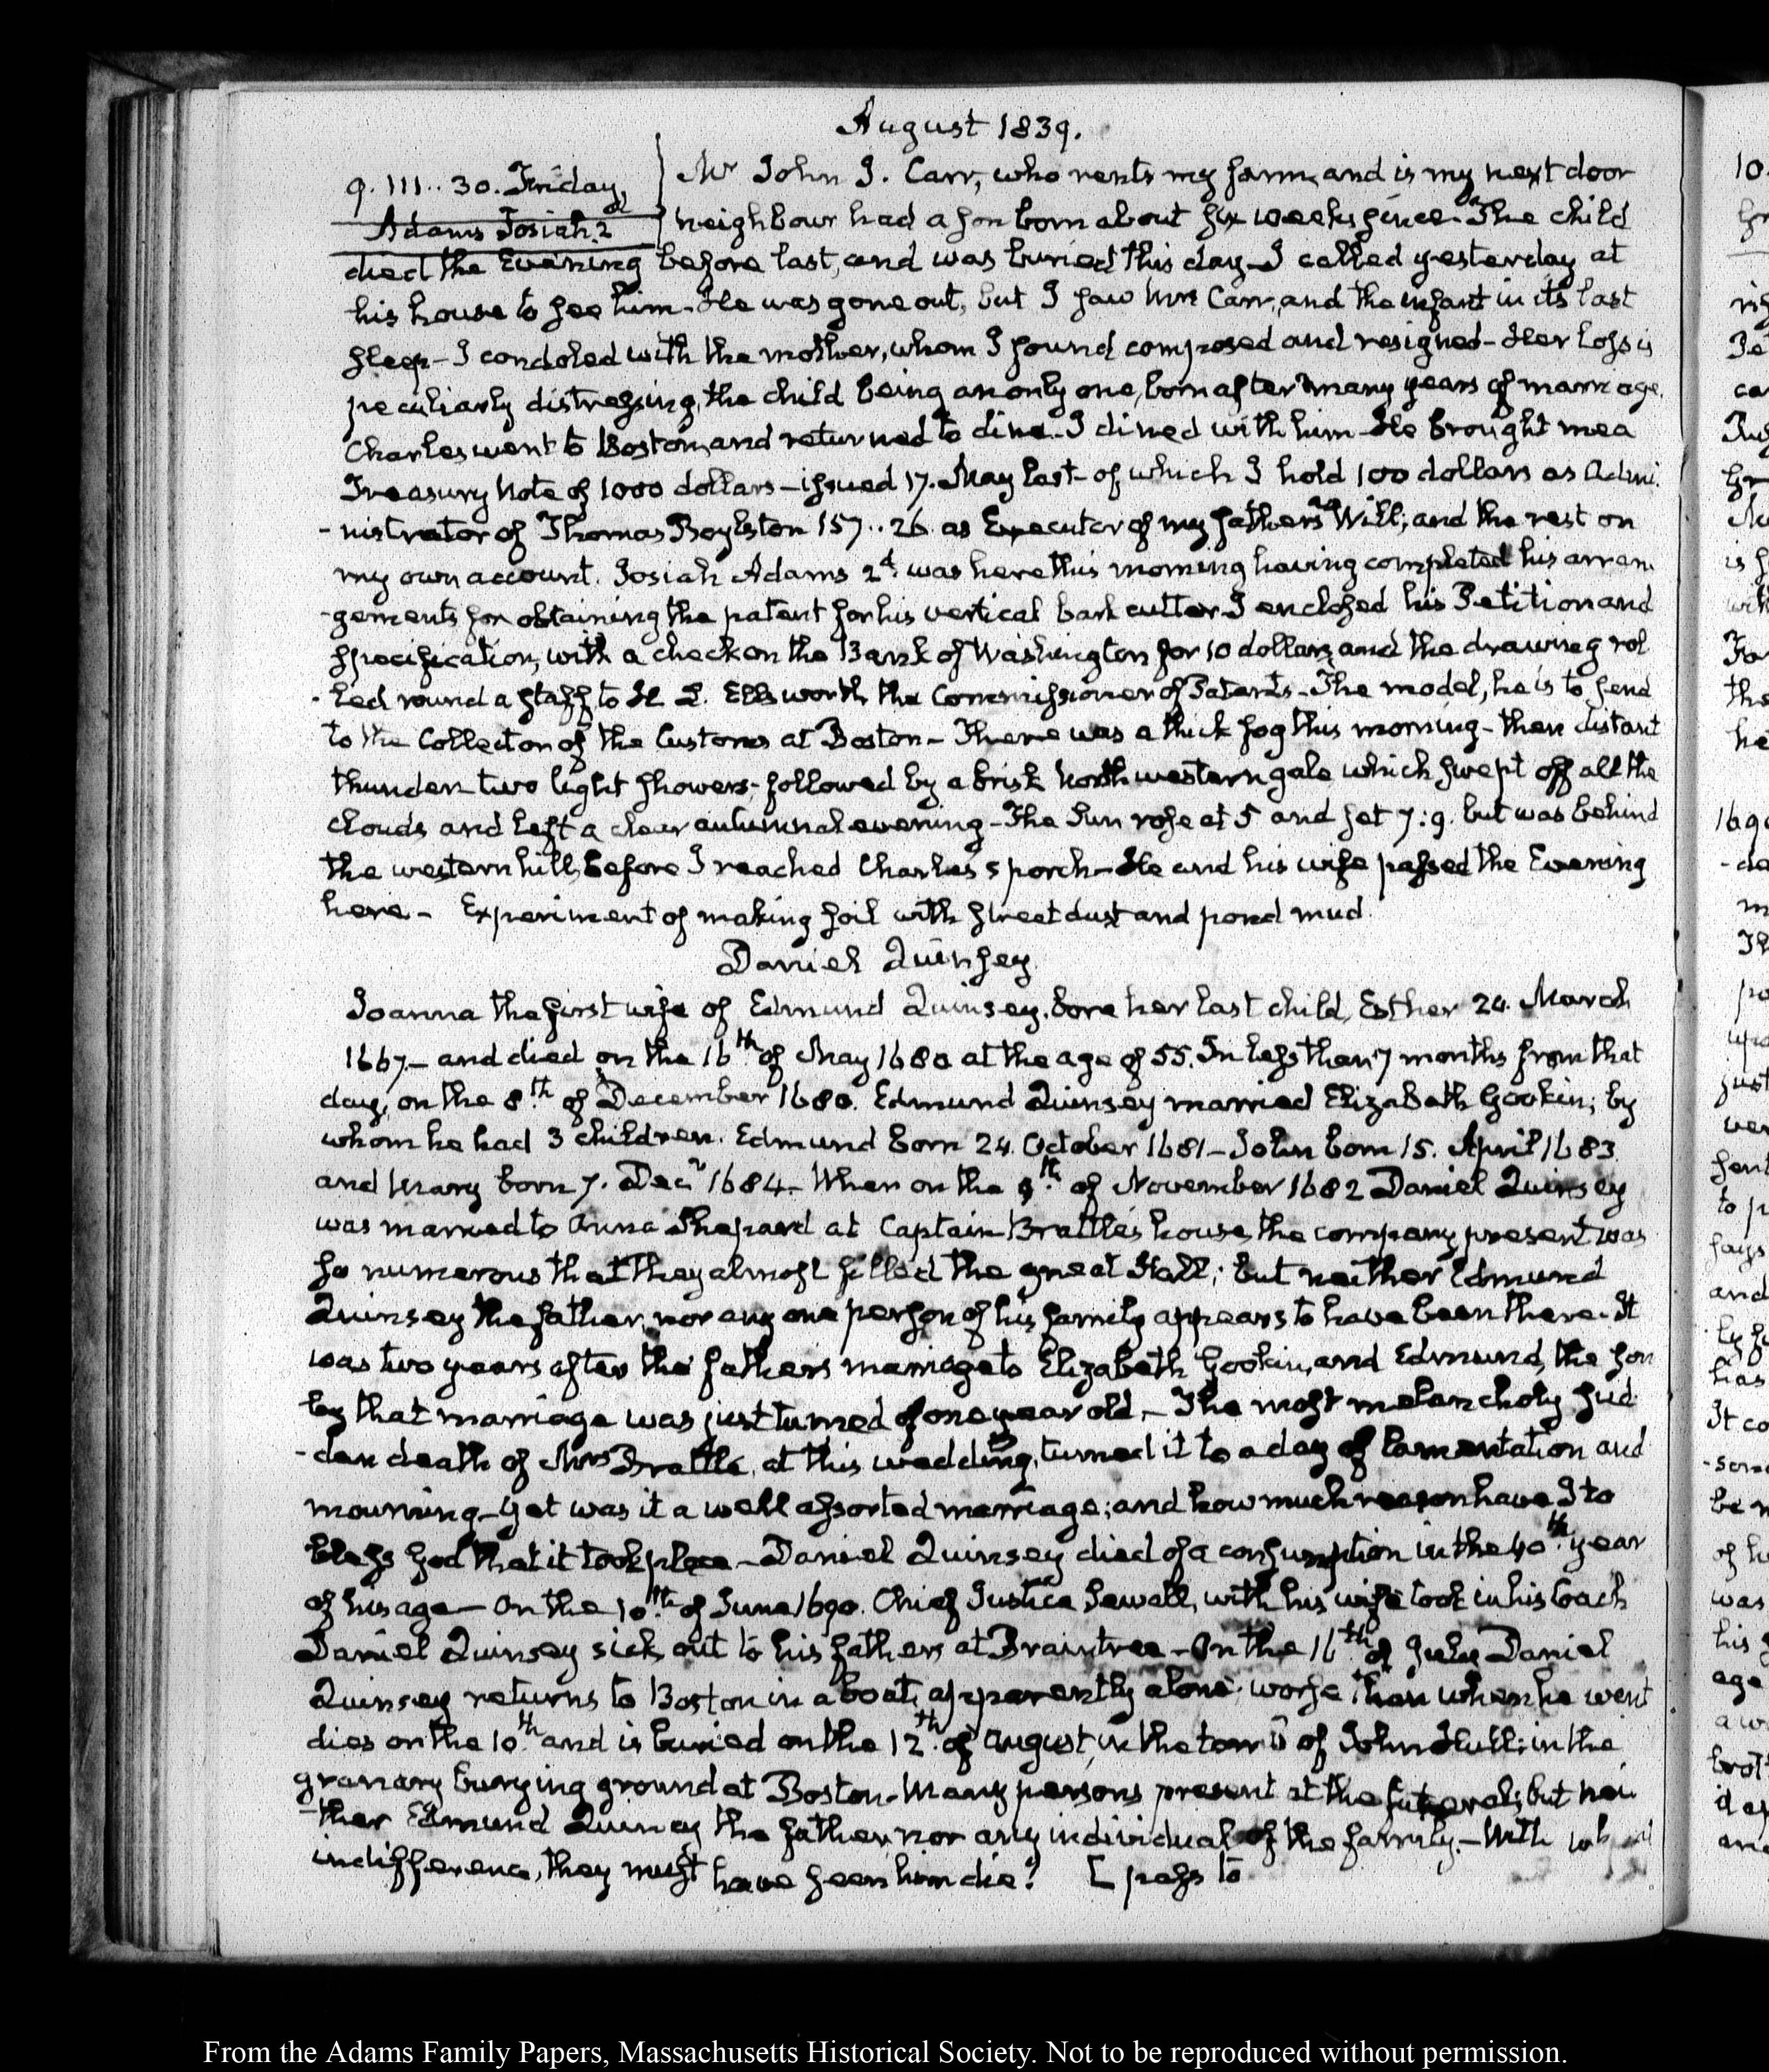 August 1839.
9. III.. 30. Friday. Mr John J. Carr, who rents my farm, and is my next door
Adams Josiah. 2d neighbour had a son born about six weeks since. The child
died the Evening before last, and was buried this day. I called yesterday at
his house to see him. He was gone out, but I saw Mrs Carr, and the infant in its last
sleep — I condoled with the mother, whom I found composed and resigned — Her loss is
peculiarly distressing, the child being an only one, born after many years of marriage.
Charles went to Boston, and returned to dine. I dined with him. He brought me a
Treasury Note of 1000 dollars — issued 17. May last — of which I hold 100 dollars as Admi
-nistrator of Thomas Boylston 157..26 as Executor of my father's Will; and the rest on
my own account. Josiah Adams 2d. was here this morning having completed his arran
-gements for obtaining the patent for his vertical bark cutter. I enclosed his Petition and
specification, with a check on the Bank of Washington for 10 dollars, and the drawing rol
-led round a staff to H. L. Ellsworth the Commissioner of Patents — The model, he is to send
to the Collector of the Customs at Boston — There was a thick fog this morning — then distant
thunder — two light showers — followed by a brisk north western gale which swept off all the
clouds and left a clear autumnal evening — The Sun rose at 5 and set 7:9. but was behind
the western hill, before I reached Charles's porch — He and his wife passed the Evening
here — Experiment of making soil with street dust and pond mud.
Daniel Quinsey
Joanna the first wife of Edmund Quinsey, bore her last child, Esther 24. March
1667. — and died on the 16th of May 1680 at the age of 55. In less then 7 months from that
day, on the 8th. of December 1680. Edmund Quinsey married Elizabeth Gookin; by
whom he had 3 children. Edmund born 24. October 1681 — John born 15. April 1683.
and Mary born 7. Decr 1684. When on the 9th. of November 1682 Daniel Quinsey
was married to Anna Shepard at Captain Brattle's house, the company present was
so numerous that they almost filled the great Hall; but neither Edmund
Quinsey the father, nor any one person of his family appears to have been there. It
was two years after the fathers marriage to Elizabeth Gookin, and Edmund, the son
by that marriage was just turned of one year old, — The most melancholy sud
-den death of Mrs Brattle, at this wedding, turned it to a day of lamentation and
mourning — Yet was it a well assorted marriage; and how much reason have I to
bless God that it took place — Daniel Quinsey died of a consumption in the 40th. year
of his age — On the 10th. of June 1690. Chief Justice Sewall, with his wife took in his Coach
Daniel Quinsey sick out to his fathers at Braintree — On the 16th. of July Daniel
Quinsey returns to Boston in a boat, apparently alone worse than when he went
dies on the 10th. and is buried on the 12th. of August, in the tomb of John Hull: in the
granary burying ground at Boston. Many persons present at the funeral; but nei
-ther Edmund Quincy the father, nor any individual of the family. — With
indifference, they must have seen him die! [pass to
From the Adams Family Papers, Massachusetts Historical Society. Not to be reproduced without permission.